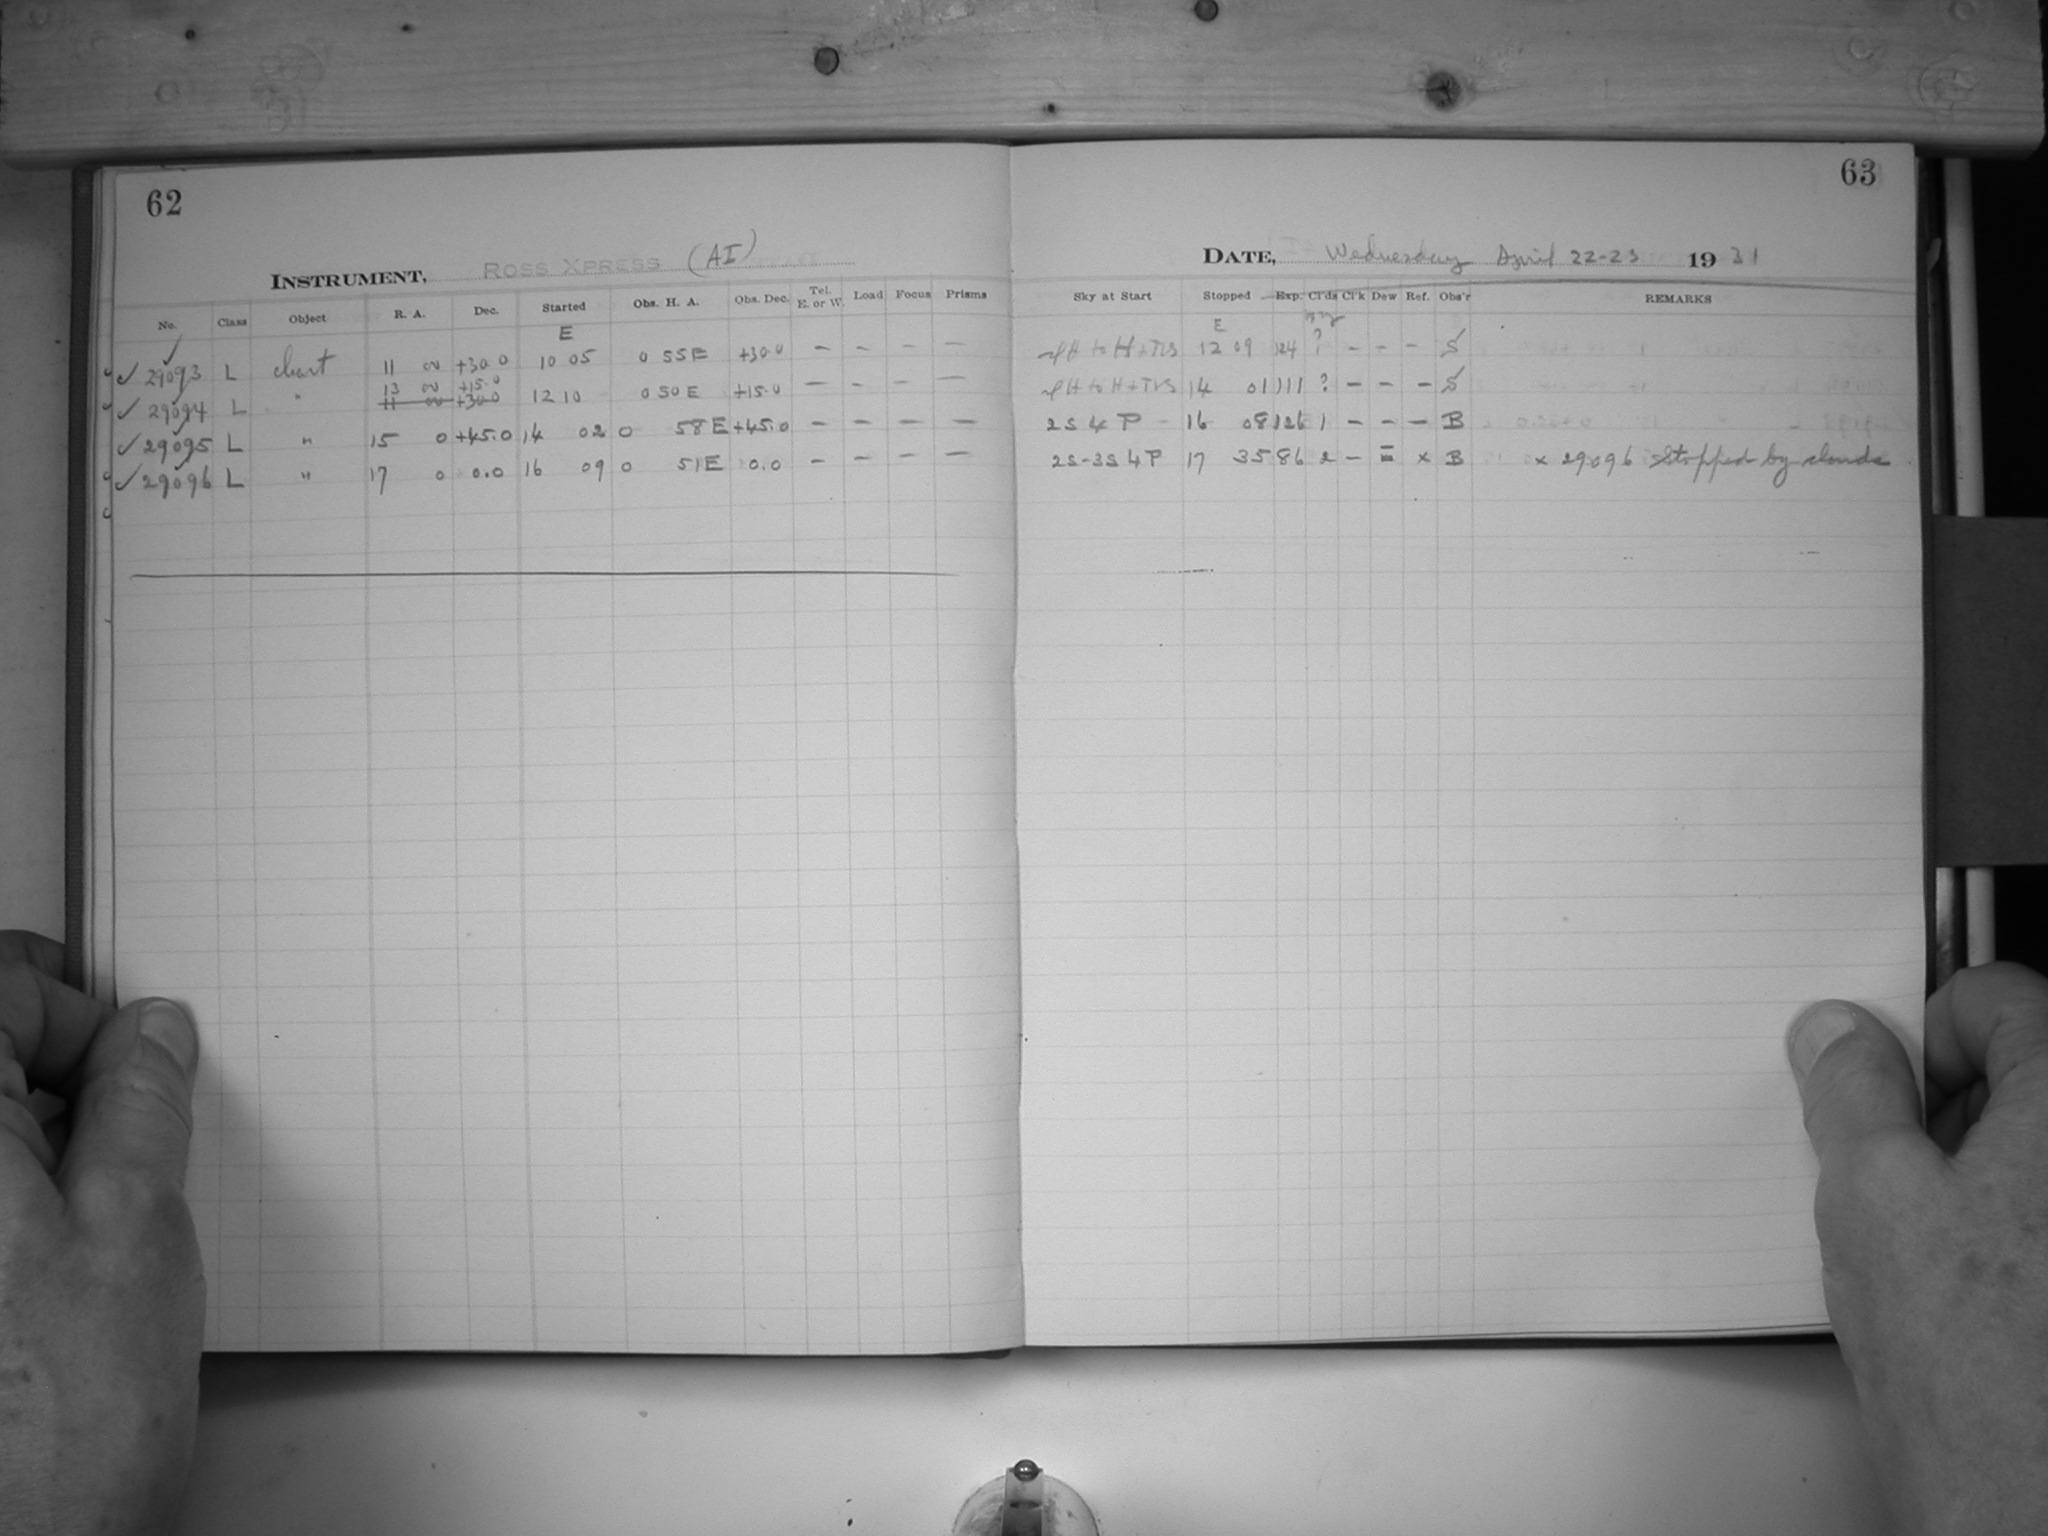 62
INSTRUMENT, ROSS XPRESS (AI)
No. Class Object R. A. Dec. Started Obs. H. A. Obs. Dec. Tel. E. or W. Load Focus Prisms
E
✓ 29093 L chart 11 00 +30 0 10 05 0 55E +30.0 — — — —
13 00 +15.0
✓ 29094 L " 11 00 +30 0 12 10 0 50 E +15.0 — — — —
✓ 29095 L " 15 0 +45.0 14 02 0 58E +45.0 — — — —
✓ 29096 L " 17 0 0.0 16 09 0 51E 0.0 — — — —
63
DATE, Wednesday April 22-23 1931
Sky at Start Stopped Exp. Cl'ds Cl'k Dew Ref. Obs'r REMARKS
E
H to H+TVS 12 09 124 ? — — — S
H to H+TVS 14 01 111 ? — — — S
2S 4 P 16 08 126 1 — — — B
2S-3S 4P 17 35 86 2 — = x B x 29096 Stopped by clouds